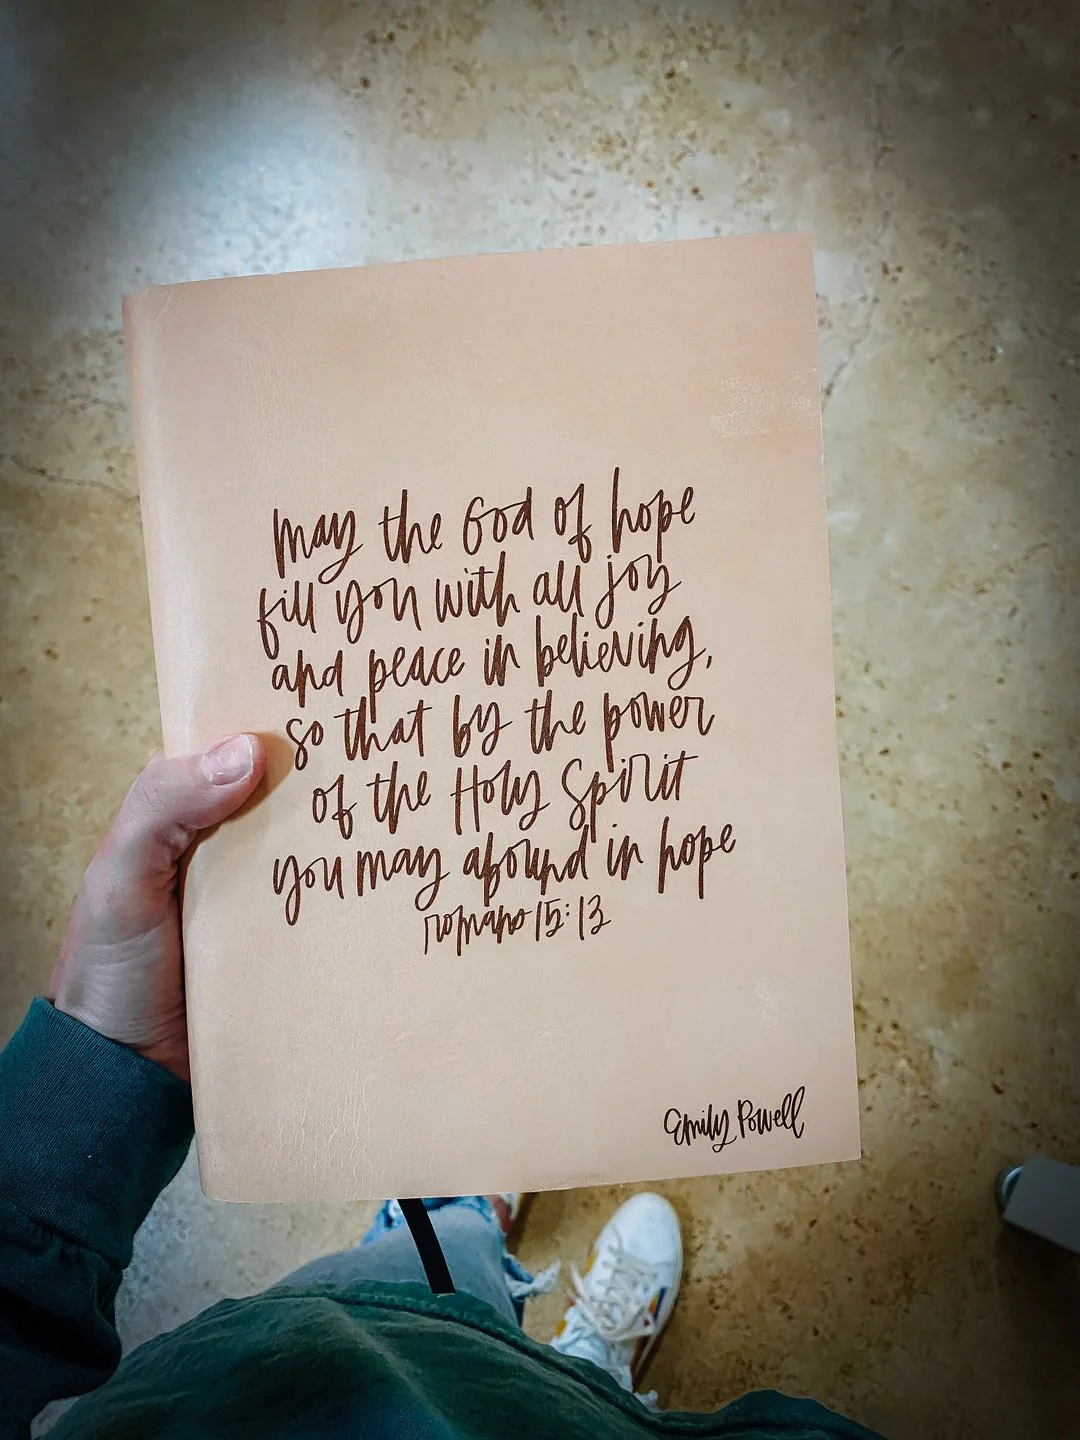 may the God of hope
fill you with all joy
and peace in believing,
so that by the power
of the Holy Spirit
you may abound in hope
romans 15:13
Emily Powell